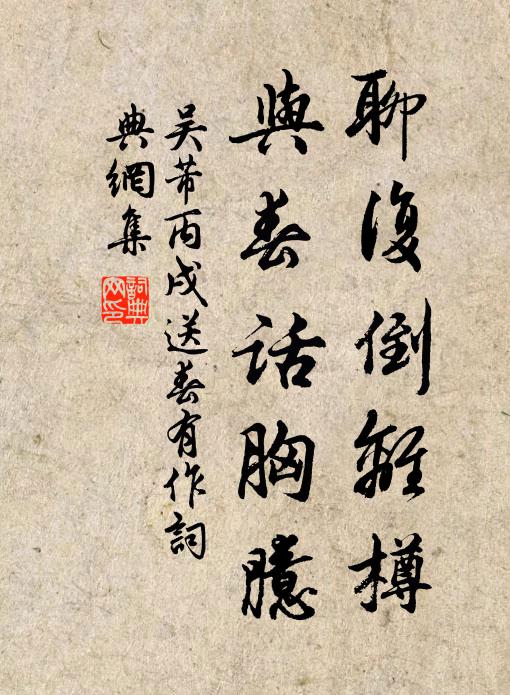 聊復倒離樽
與春話胸臆
吳芾丙戌送春有作詞
典網集
詞典網印